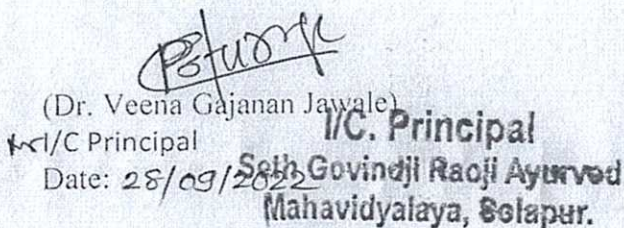 (Dr. Veena Gajanan Jawale)
I/C Principal
Date: 28/09/2022
I/C. Principal
Seth Govindji Raoji Ayurved
Mahavidyalaya, Solapur.